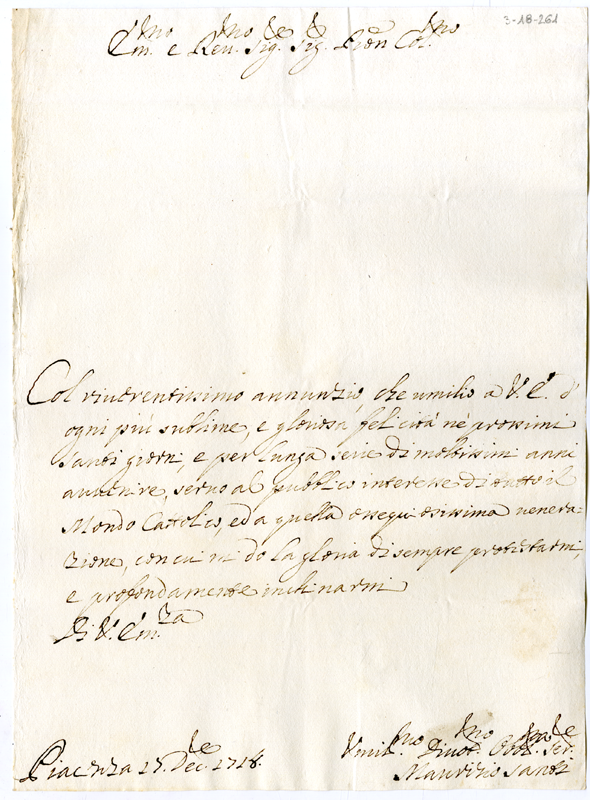 3-18-261
Em.mo e Rev.mo Sig.re Sig.r Pron Col.mo
Col riverentissimo annunzio, che umilio a V. E. d'
ogni più sublime, e gloriosa felicità nè prossimi
Santi giorni, e per lunga serie di moltissimi anni
avvenire, servo al pubblico interesse di tutto il
Mondo Cattolico, ed a quella ossequiosissima venera-
zione, con cui mi dò la gloria di sempre protestarmi,
e profondamente inchinarmi
Di V. Em.za
Piacenza 15 Dec.re 1718.
Umil.mo Divot. Obb. Ser.re
Maurizio Santi